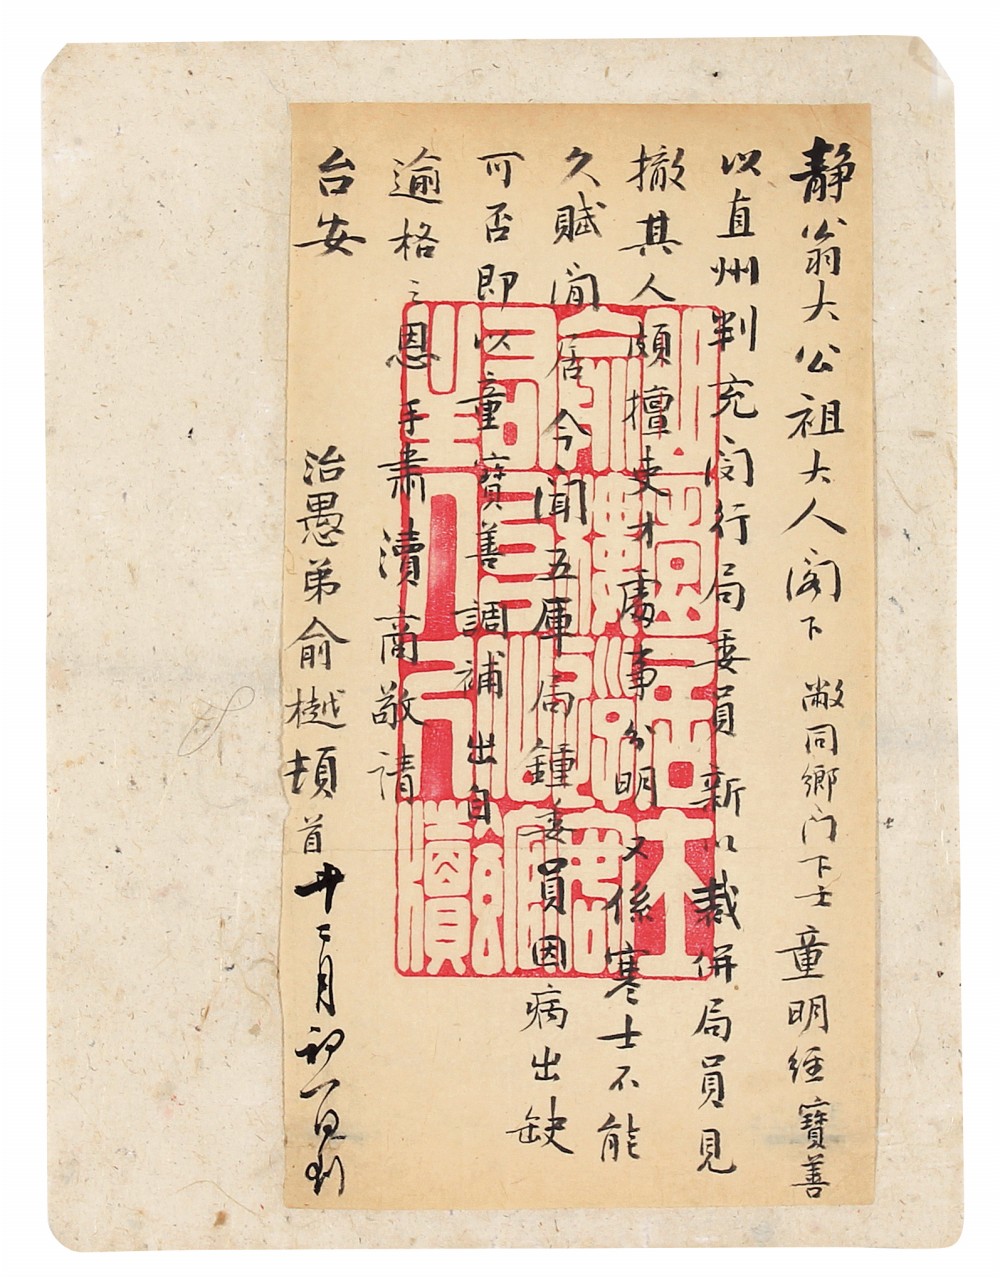 静翁大公祖大人阁下敝同鄉门下士童明經寶善
以直州判充闵行局委員新以裁併局員見
撤其人頗擅吏才處事分明又係寒士不能
久賦閒居今聞五厍局鍾委員因病出缺
可否即以童寶善調補出自
逾格之恩手肃瀆商敬请
台安
治愚弟俞樾頓首
十二月初一日到